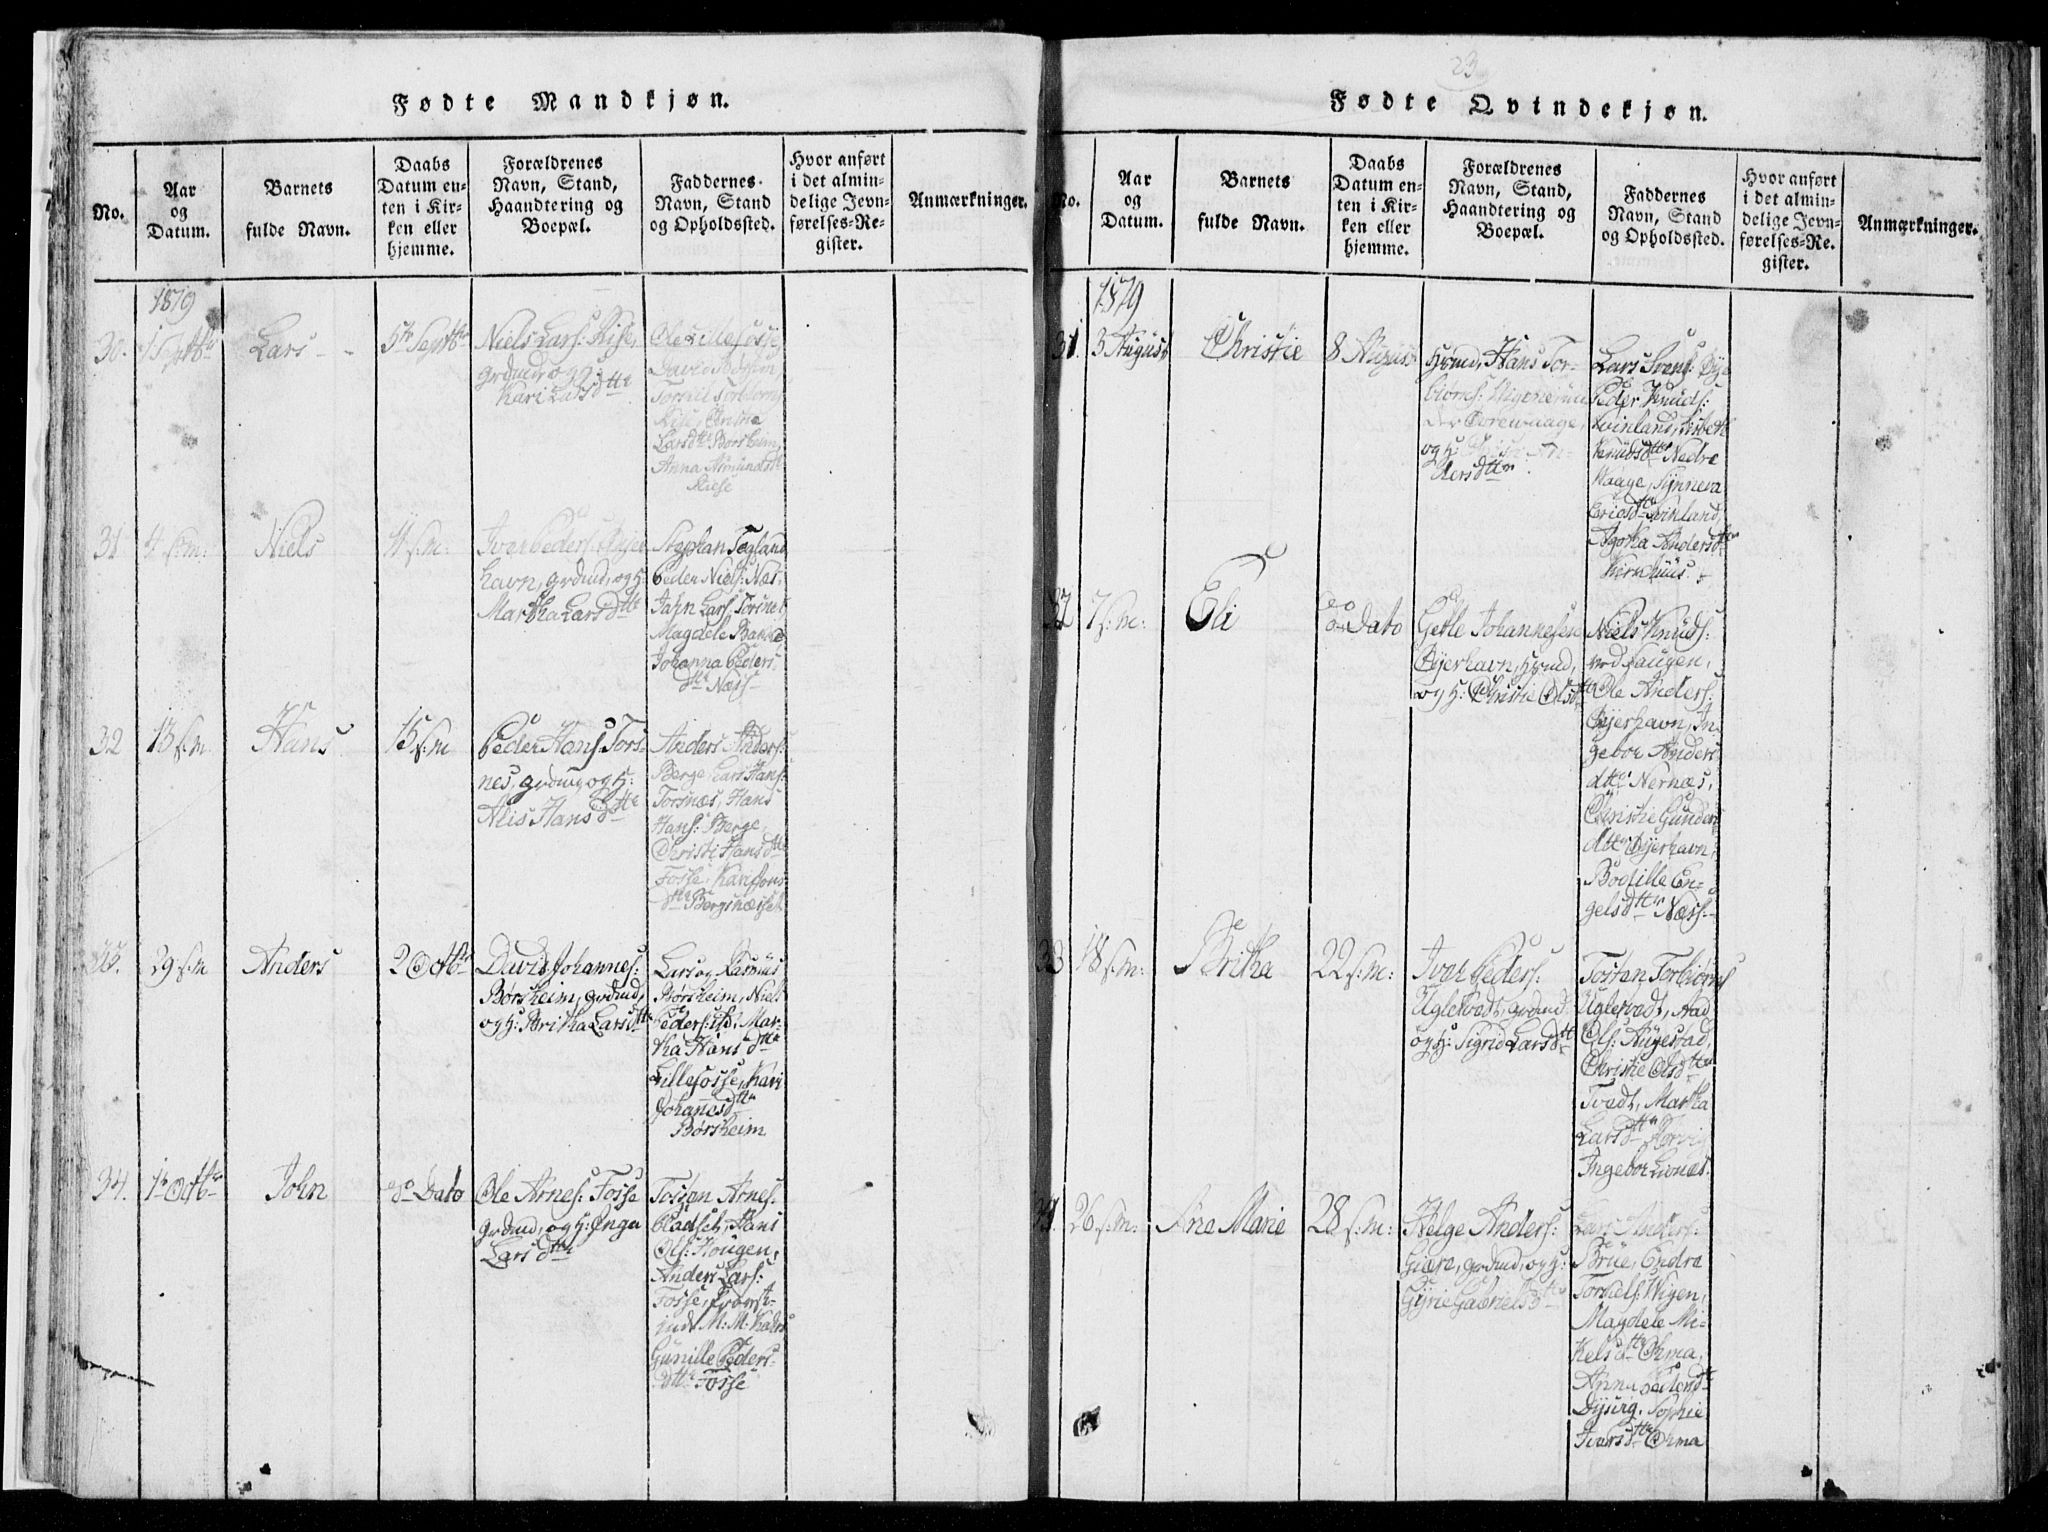 Fødte Mandkjøn.
No.
Aar
og
Datum.
Barnets
fulde Navn.
Daabs
Datum en-
ten i Kir-
ken eller
hjemme.
Forældrenes
Navn, Stand,
Haandtering og
Boepæl.
Faddernes
Navn, Stand
og Opholdssted.
Hvor anført
i det almin-
delige Jevn-
førelses-Re-
gister.
Anmærkninger.
1819
30.
1 Septbr
Lars
5te Septbr
Niels Lars: Rise,
grdmd, og
Kari Larsdttr
Ole Lillefosse
David
Torkil Torbiorns
Rise,
Larsdttr Børsheim,
Anna Amundsdt
Riese
31
4 s:m:
Niels
11 s:m:
Iver Peders: Øyer
havn, grdmd, og h:
Martha Larsdttr
Stephan Tegland
Peder Niels: Næs
John Lars: Torsnes
Magdele
Johanna Peders
dttr Næss
32
13 s:m
Hans
15 s:m
Peder Hans: Tors-
nes, grdmd, og h:
Alis Hansdttr
Anders Anders:
Berge, Lars Hans:
Torsnæs, Hans
Hans: Berge,
Christi Hansdttr
Fosse, Kari Jons
dttr Bergsnæsset
33.
29 s:m
Anders
2 Octbr
David Johannes:
Børsheim, grdmd,
og h: Britha Larsdttr
Lars og Rasmus
Børsheim, Niels
Peders: ibd, Mar-
tha Hansdttr
Lillefosse, Kari
Johanesdttr
Børsheim
34.
1te Octbr
John
do Dato
Ole Arnes: Fosse
grdmd, og h: Inga
Larsdttr
Tosten Arnes:
Hans
Ols: Hougen,
Anders Lars:
Fosse,
M: M:
Gunille Peders
dttr Fosse
23
Fødte Qvindekjøn.
No.
Aar
og
Datum.
Barnets
fulde Navn.
Daabs
Datum en-
ten i Kir-
ken eller
hjemme.
Forældrenes
Navn, Stand,
Haandtering og
Boepæl.
Faddernes
Navn, Stand
og Opholdssted.
Hvor anført
i det almin-
delige Jevn-
førelses-Re-
gister.
Anmærkninger.
1819
31.
3 August
Christie
8 August
Hans Tor-
biorns:
og h: An-
dersdttr
Lars Svens:
Peder Knuds:
Kvinland, Lisbeth
Knudsdttr Nedre
Waage, Synneva
Kvinland,
Agotha Andersdttr
Kirkhuus
32
7 s:m:
Eli
do Dato
Getle Johannesen
Øyerhavn,
og h: Christie Olsdttr
Niels Knuds:
Ole Anders:
Øyerhavn, In-
gebor Anders
dttr Nernæs,
Christie Gunders
dttr Øyerhavn,
Bodille En-
gelsdttr Næss
33
18 s:m:
Britha
22 s:m:
Iver Peders:
Uglevedt, grdmd
og h: Sigrid Larsdtt
Tosten Torbiörns
Uglevedt, Aad
Ols: Augestad,
Christie Olsdttr
Tvedt, Martha
Larsdttr
Ingebor
34.
26 s:m:
Ane Marie
28 s:m:
Helge Anders:
Giære, grdmd, og h:
Gyrie Gabrielsdttr
Lars Anders:
Brue, Endre
Torkels: Wigen,
Magdele Mi-
kelsdttr Ohma,
Anna Pedersdt
Sophie
Iversdttr Ohma